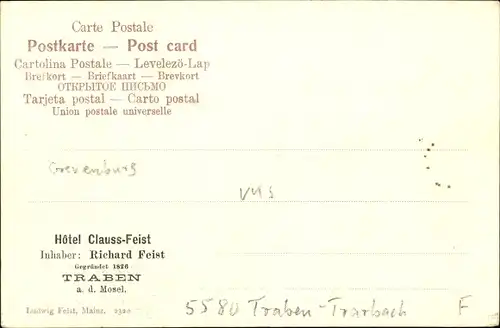 Carte Postale
Postkarte — Post card
Cartolina Postale — Levelező-Lap
Brefkort — Briefkaart — Brevkort
ОТКРЫТОЕ ПИСЬМО
Tarjeta postal — Carto postal
Union postale universelle
Grevenburg
Hôtel Clauss-Feist
Inhaber: Richard Feist
Gegründet 1826
TRABEN
a. d. Mosel.
Ludwig Feist, Mainz. 2320
5580 Traben-Trarbach F